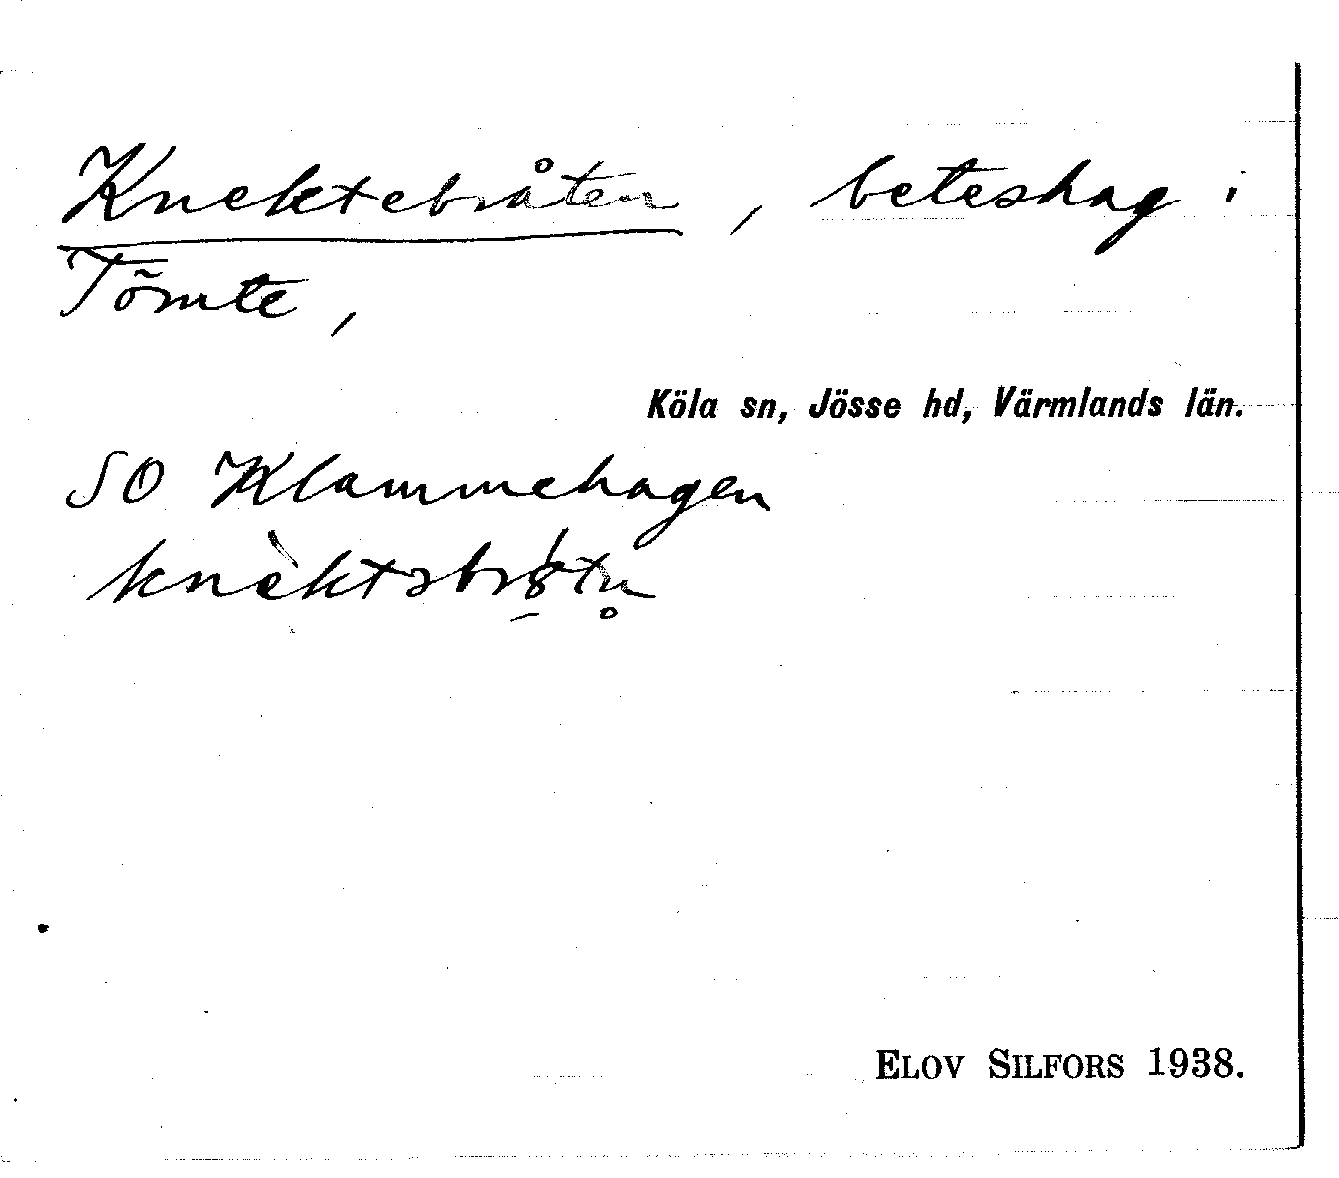 Knektebråten, beteshag i
Tömte,
Köla sn, Jösse hd, Värmlands län.
SO Klammehagen
ELOV SILFORS 1938.